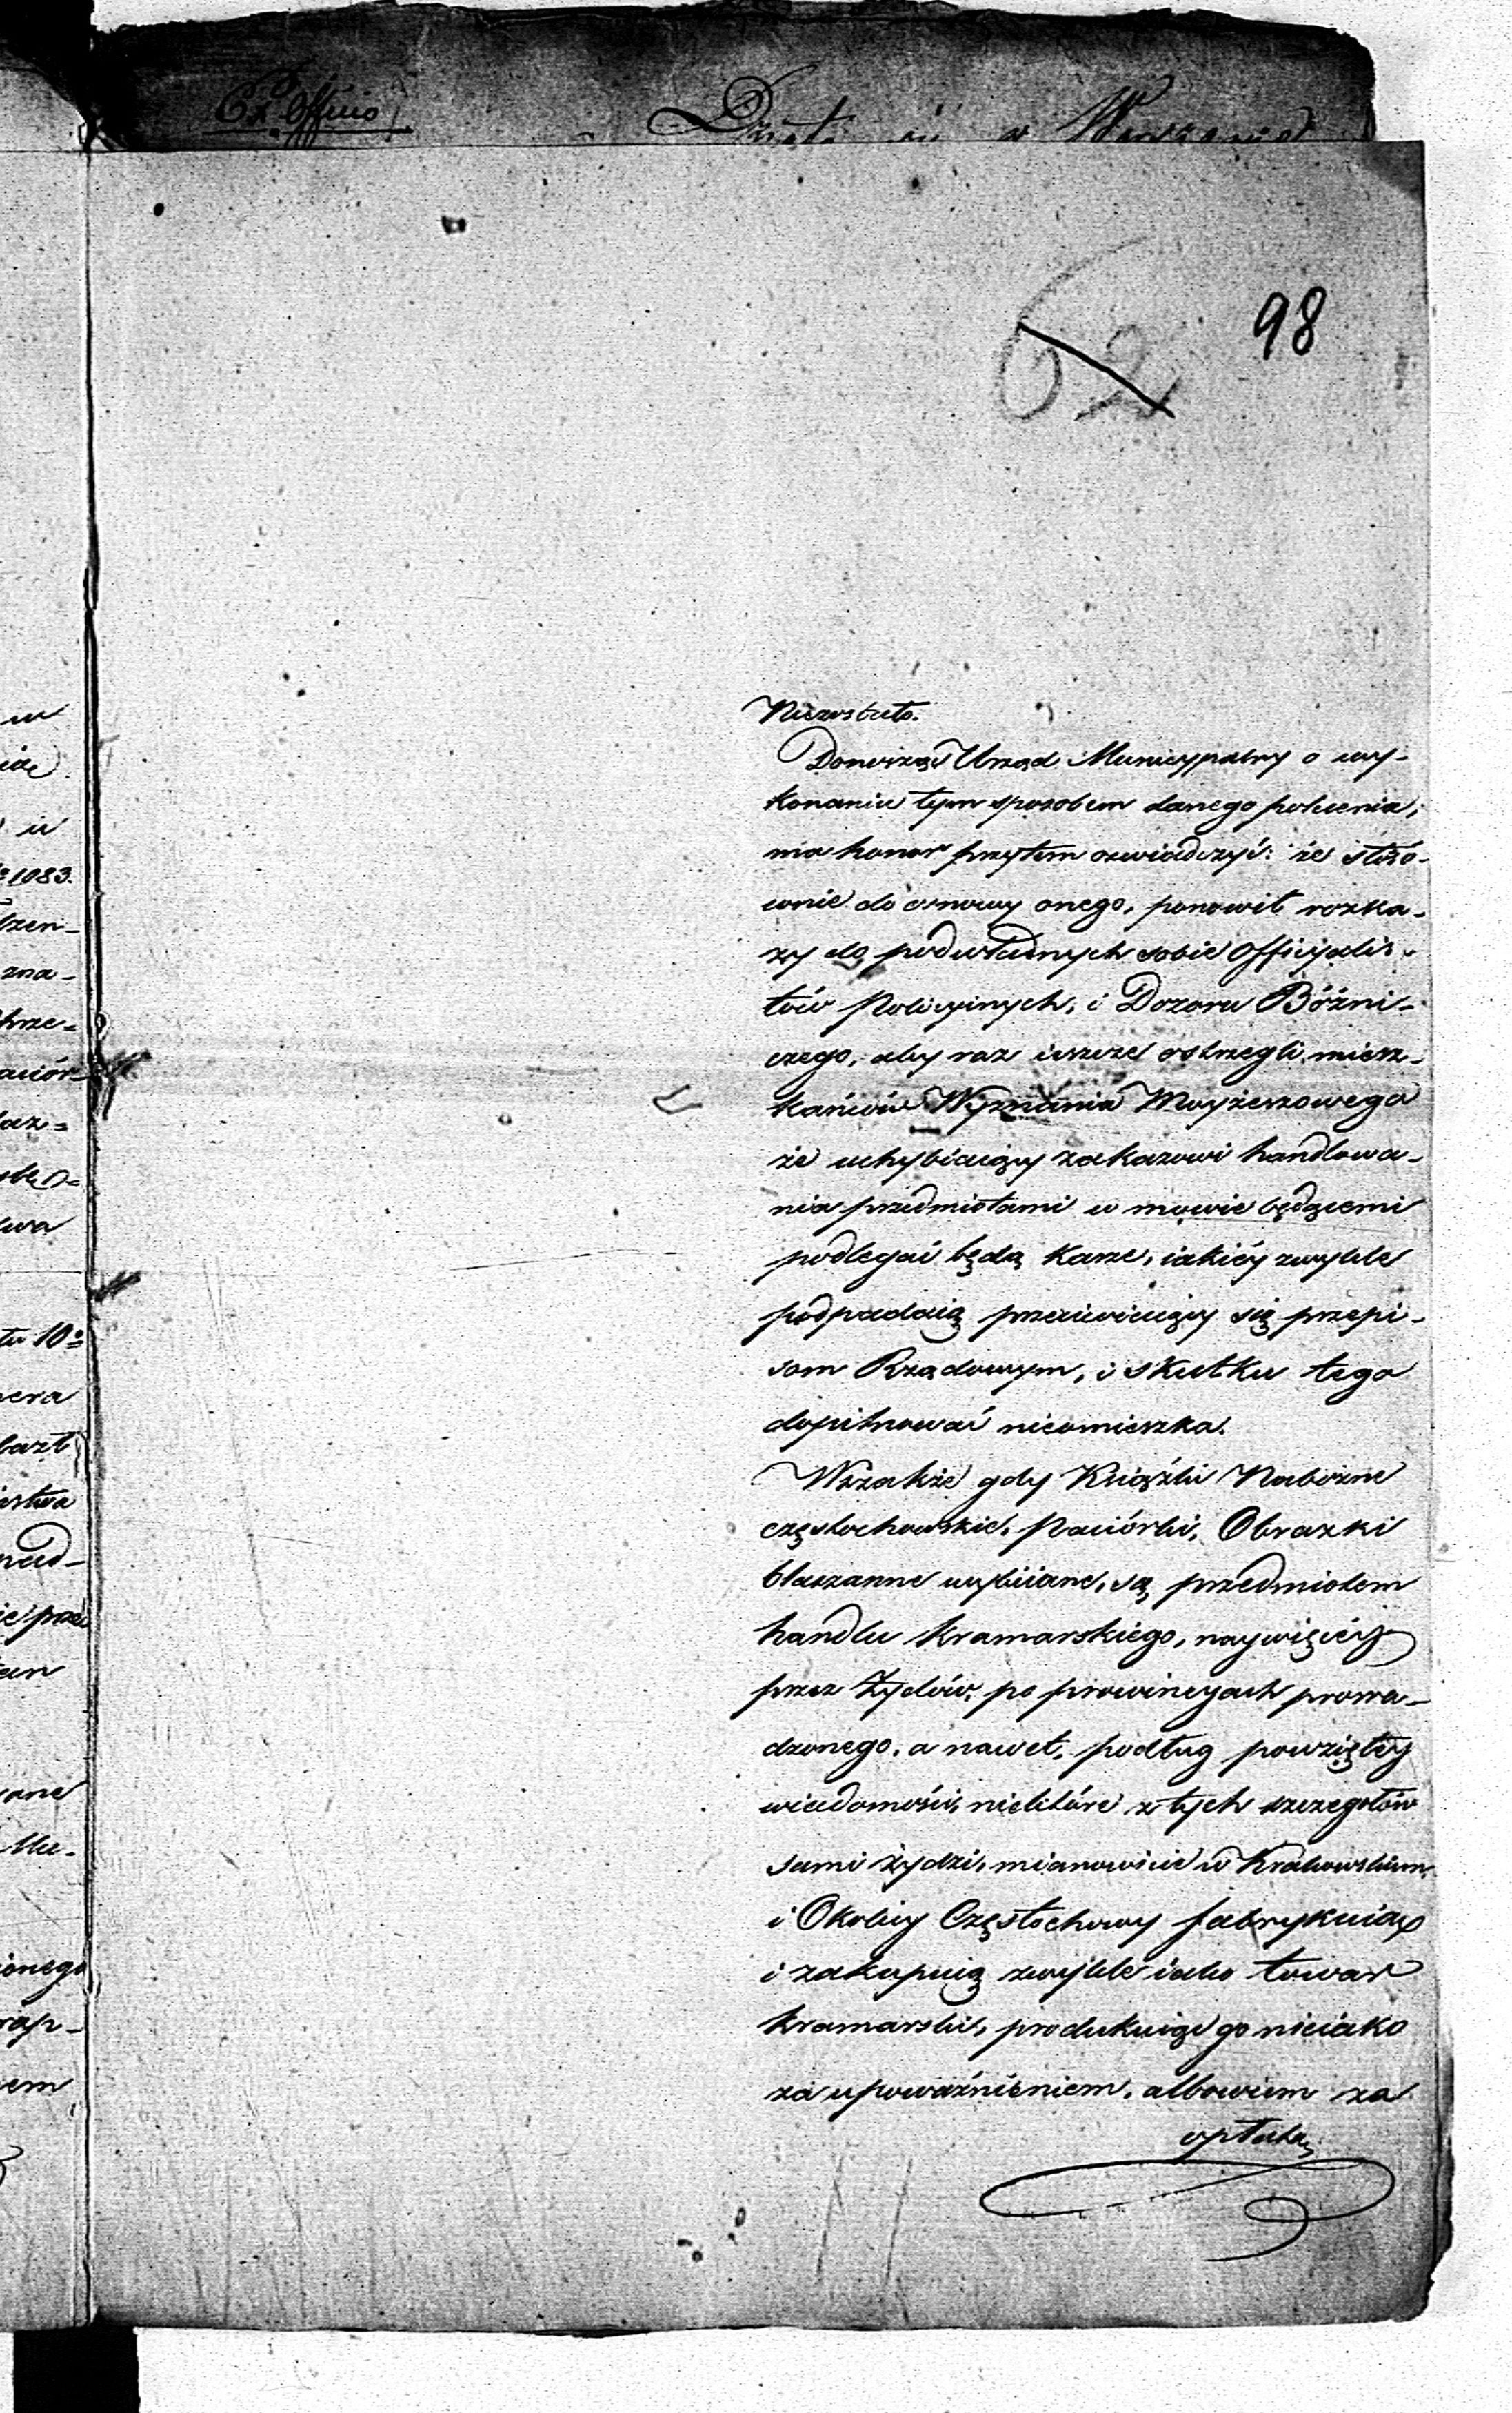 Ex Officio
Działo w Warszawie
98
62
w
ii
1083.
dzen-
zna-
hrze-
aciór-
łaz-
twa
tu 10
era
bazt
nad-
ie prze
ane
Mu-
ionego
rap-
em
Niezostało.
Donosząc Urząd Municypalny o wy-
konaniu tym sposobem danego polecenia,
ma honor przytem oświadczyć: że stóso-
wnie do osnowy onego, ponowił rozka-
zy do podwładnych sobie Officyalis-
tów Policyinych, i Dozoru Bóźni-
czego, aby raz ieszcze ostrzegli miesz-
kańców Wyznania Moyżeszowego
że uchybiaiący zakazowi handlowa-
nia przedmiotami w mowie będącemi
podlegać będą karze, iakiéy zwykle
podpadaią przeciwiaiący się przepi-
som Rządowym, i skutku tego
dopilnować nieomieszka.
Wszakże gdy Książki Nabożne
częstochowskie, Paciórki, Obrazki
blaszanne wybiiane, są przedmiotem
handlu kramarskiego, naywięcéy
przez Żydów, po prowincyach prowa-
dzonego, a nawet, podług powziętéy
wiadomości, niektóre z tych szczegółów
sami żydzi, mianowicie w Krakowskiem,
i Okolicy Częstochowy fabrykuią
i zakupuią zwykle iako towar
kramarski, produkuiąc go nieiako
za upoważnieniem, albowiem za
opłatą